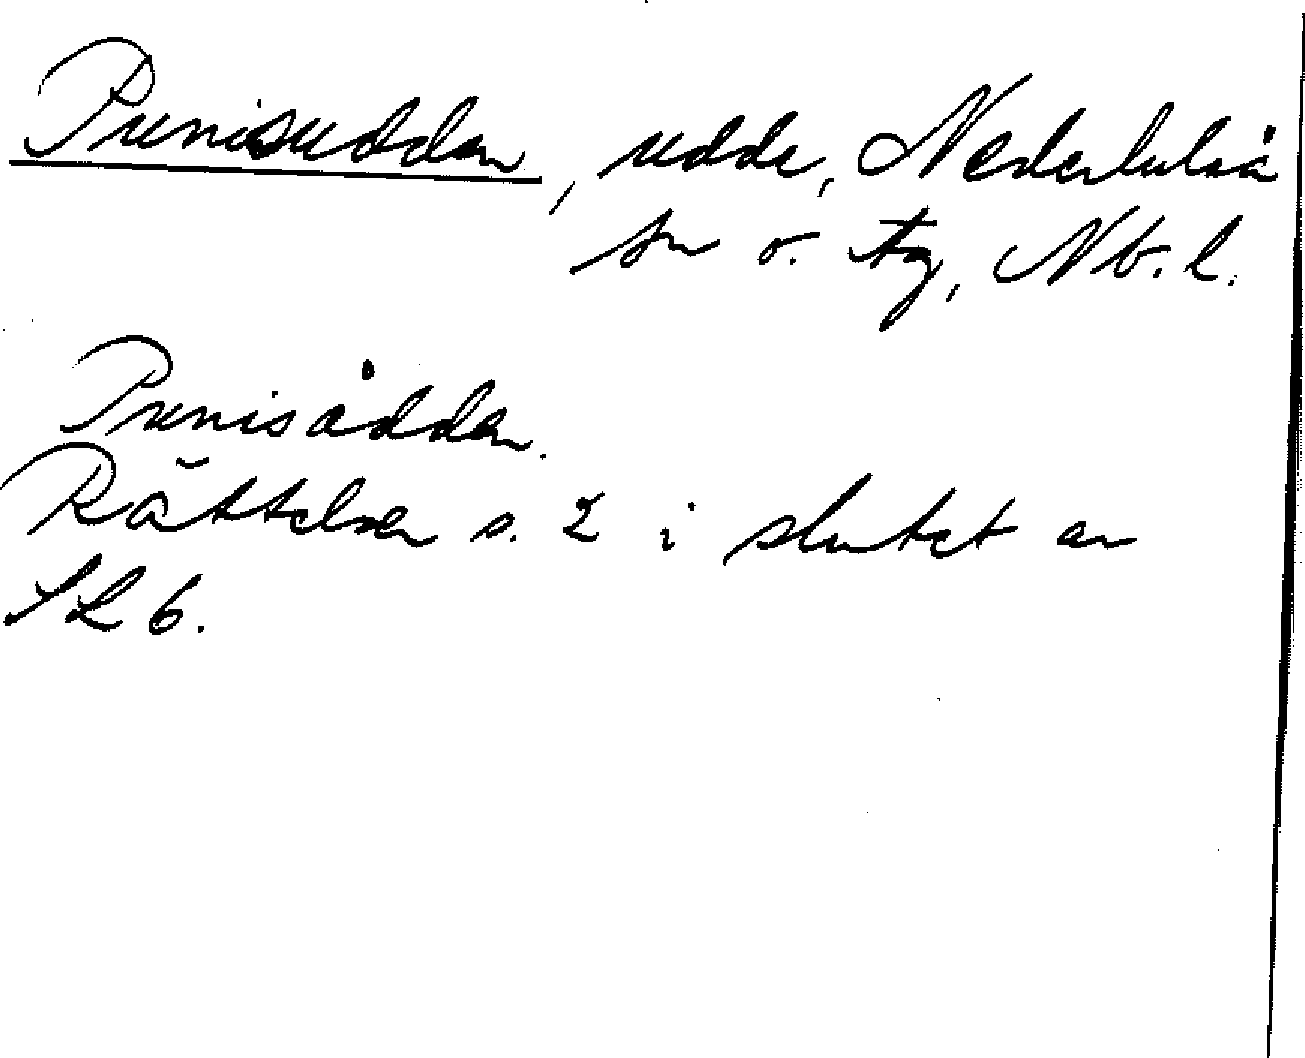 Prunisudden, udde, Nederluleå
sn o. tg, Nb. l.
Prunisådden.
Rättelser s. 2 i slutet av
SL 6.